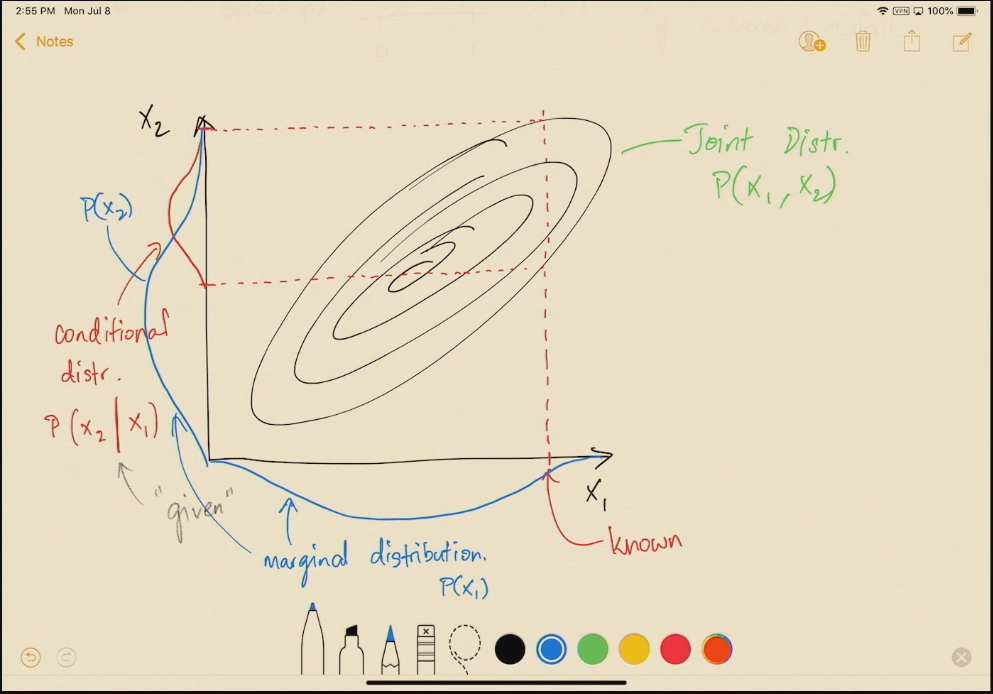 2:55 PM Mon Jul 8
VPN 100%
Notes
X2
Joint Distr.
P(X1, X2)
P(X2)
conditional
distr.
P(X2 | X1)
"given"
X1
known
marginal distribution.
P(X1)